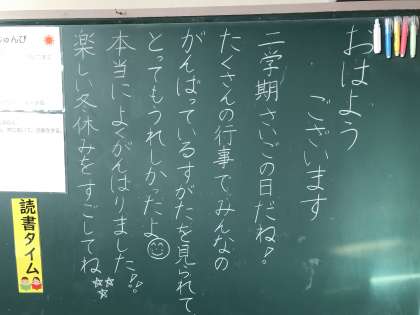 おはよう
ございます
二学期さいごの日だね!
たくさんの行事で、みんなの
がんばっているすがたを見られて
とってもうれしかったよ
本当によくがんばりました!!
楽しい冬休みをすごしてね
読書タイム